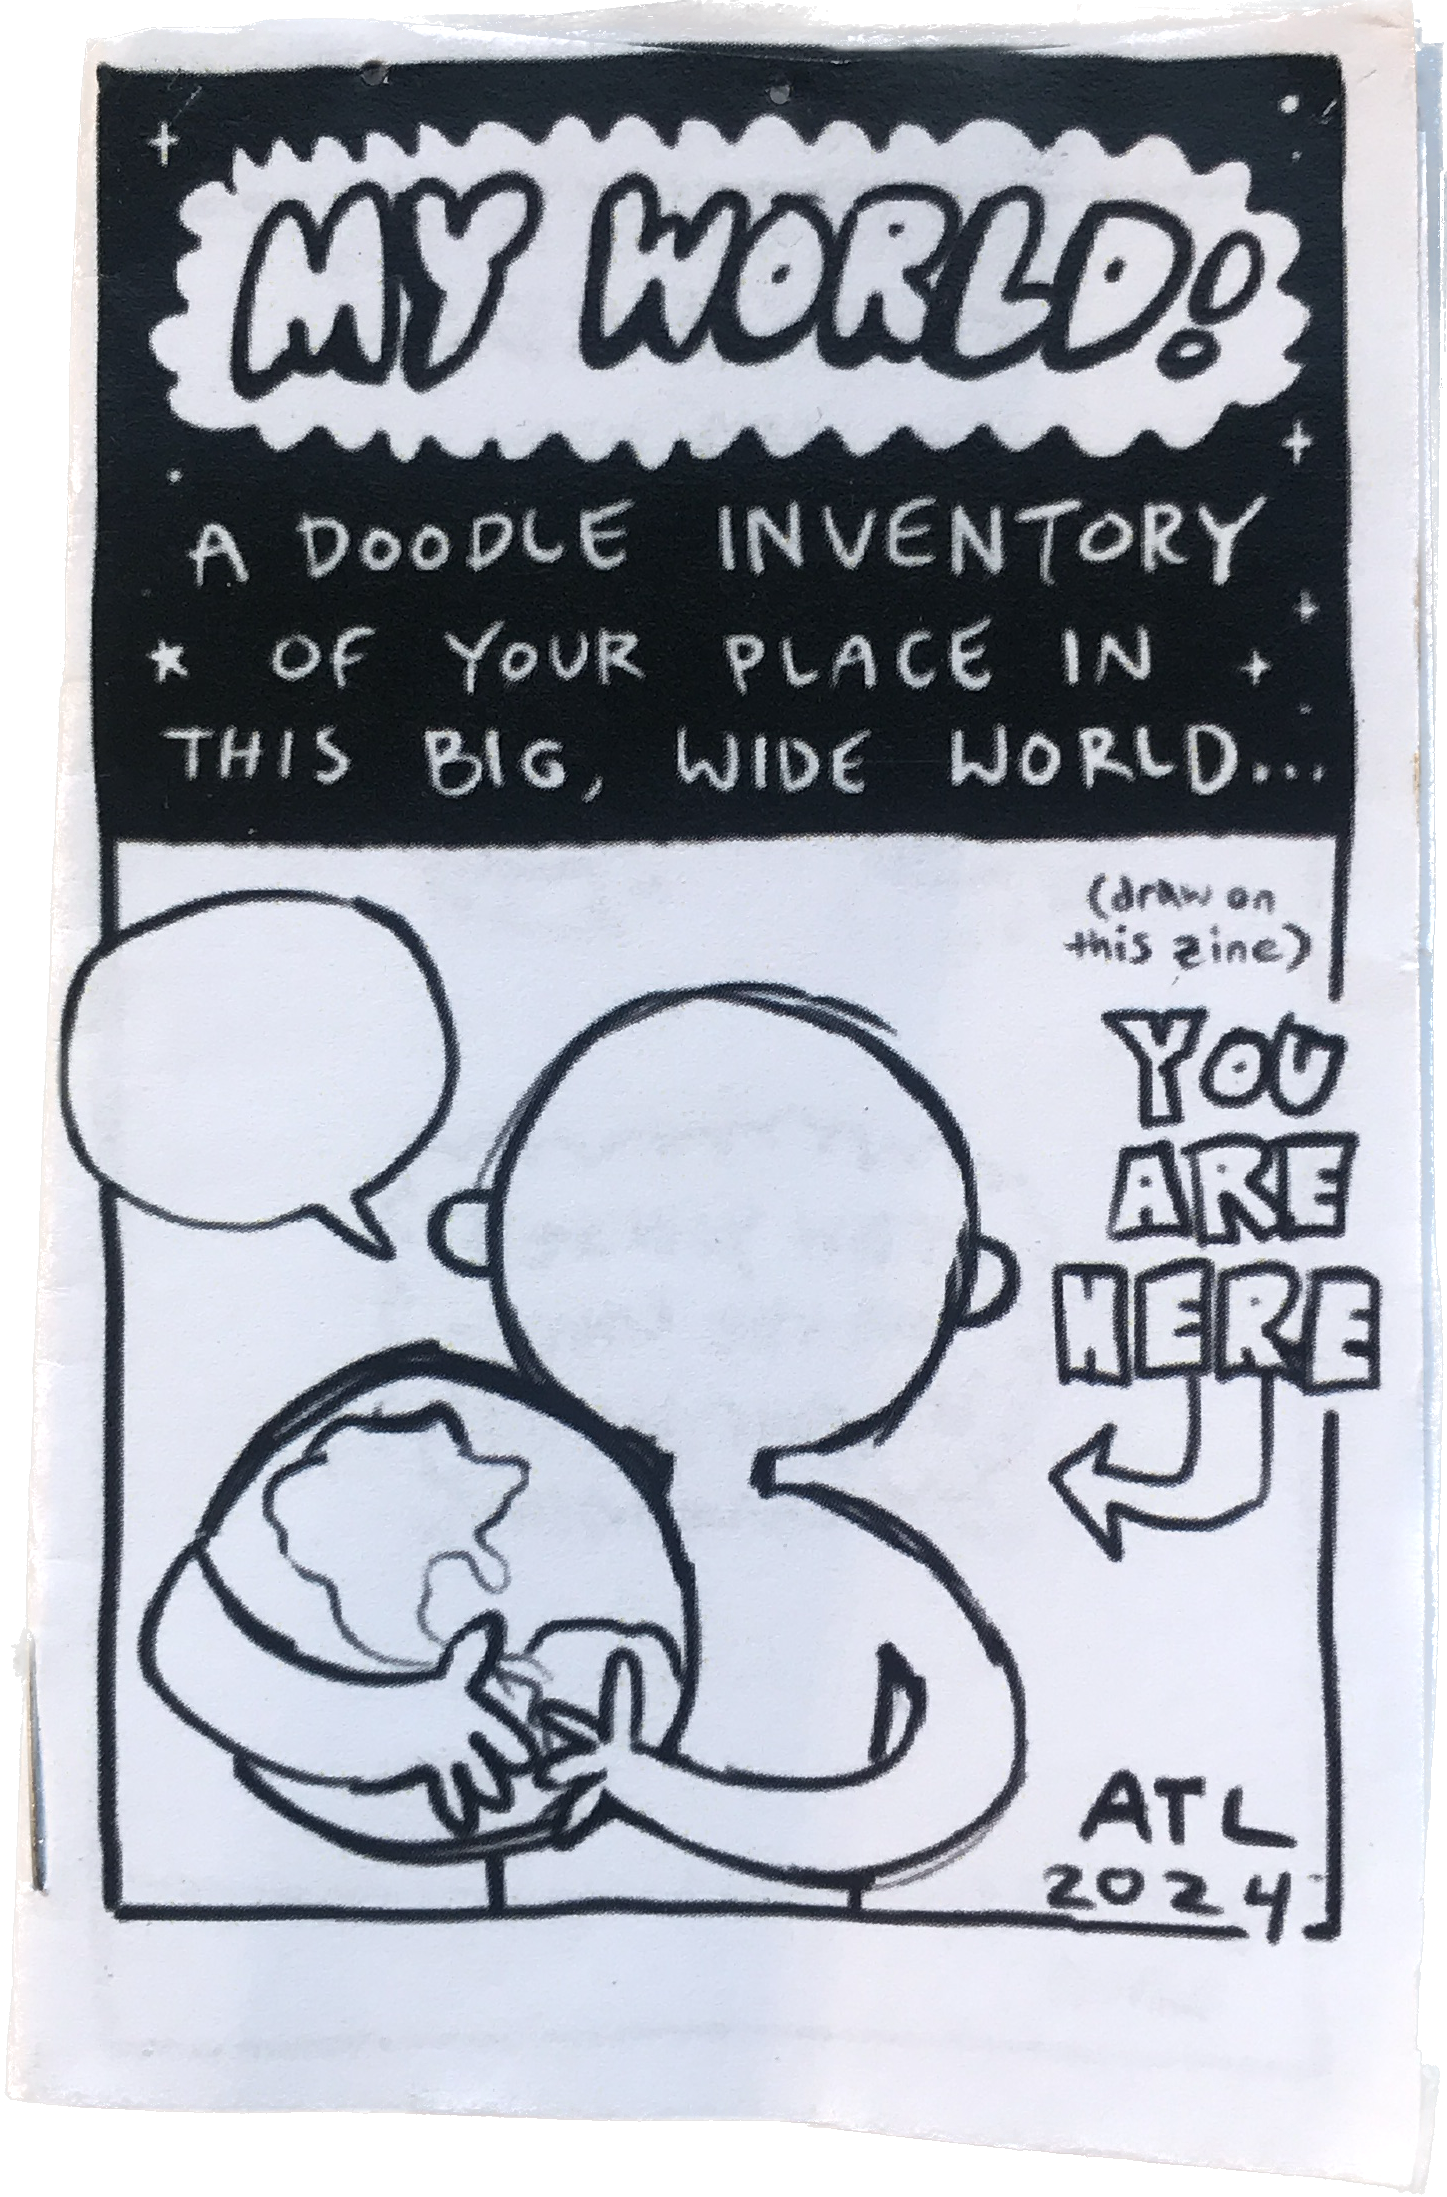 MY WORLD!
A DOODLE INVENTORY
OF YOUR PLACE IN
THIS BIG, WIDE WORLD...
(draw on
this zine)
YOU
ARE
HERE
ATL
2024